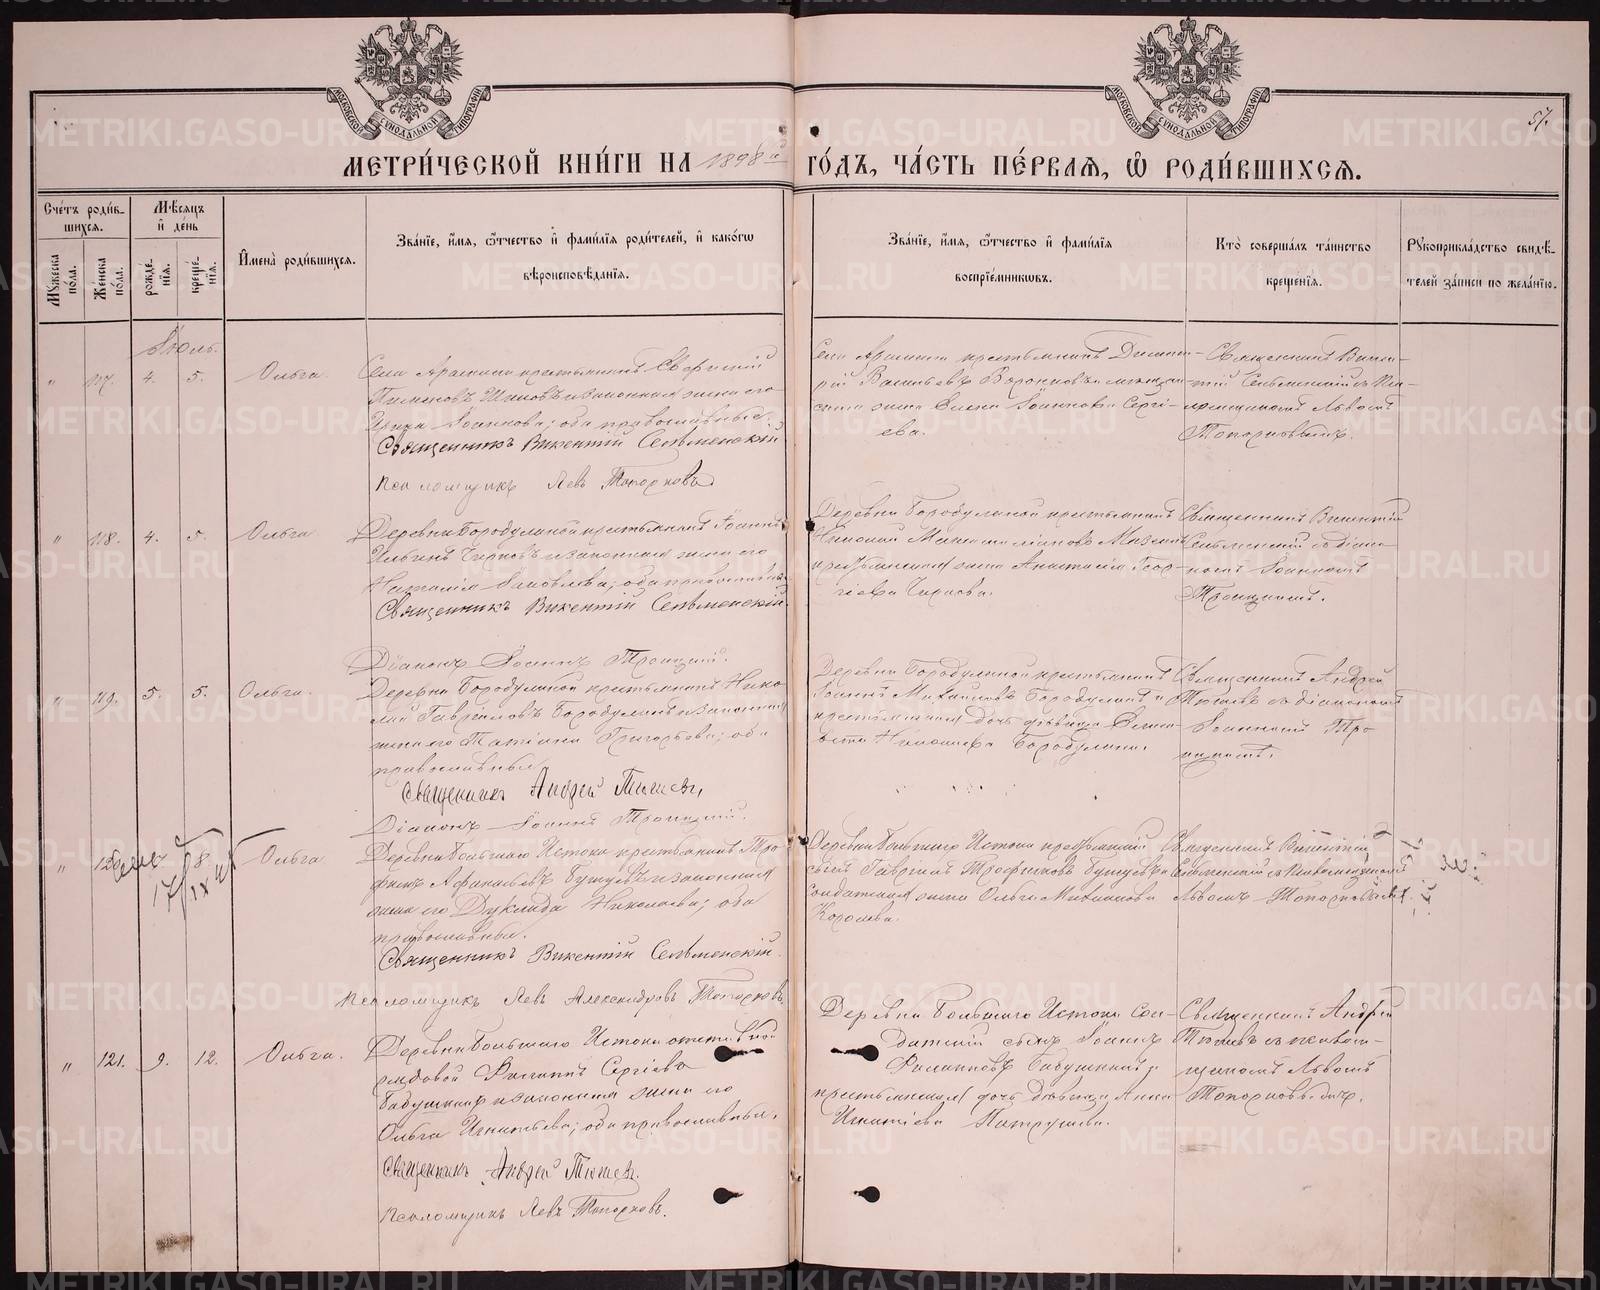 МЕТРИ́ЧЕСКОЙ КНИ́ГИ НА 1898й ГО́ДЪ, ЧА́СТЬ ПЕ́РВАЯ, Ѿ РОДИ́ВШИХСЯ.
57.
МОСКОВСКОЙ СѴНОДАЛЬНОЙ ТИПОГРАФІИ
МОСКОВСКОЙ СѴНОДАЛЬНОЙ ТИПОГРАФІИ
Сче́тъ роди́вшихся.
Мꙋжеска по́ла.
Же́нска по́ла.
Мѣ́сяцъ и҆ де́нь
рожде́нїя.
креще́нїя.
И҆мена̀ роди́вшихся.
Зва́нїе, и҆́мя, ѻ҆́тчество и҆ фами́лїя роди́телей, и҆ како́гѡ
вѣроисповѣ́данїя.
Зва́нїе, и҆́мя, ѻ҆́тчество и҆ фами́лїя
воспрїе́мникѡвъ.
Кто̀ соверша́лъ та́инство
креще́нїя.
Рꙋкоприкла́дство свидѣ́-
телей за́писи по жела́нїю.
Іюль.
" 117. 4. 5. Ольга
Села Арамили крестьянинъ
Пименовъ и законная жена его
Іоаннова; оба православные
Священникъ Викентій Сельменскій
Псаломщикъ Левъ Топорковъ
Села Арамили крестьянинъ Димит-
рій Васильевъ Воронковъ и
жена Елена Іоаннова Сергі-
ева.
Священникъ Викен-
тій Сельменскій съ Пса-
ломщикомъ Львомъ
Топорковымъ.
" 118. 4. 5. Ольга
Деревни Бородулиной крестьянинъ Іоаннъ
Ильинъ Чирковъ и законная жена его
Наталія Яковлева; оба православные
Священникъ Викентій Сельменскій
Діаконъ Іоаннъ Троицкій.
Деревни Бородулиной крестьянинъ
Николай
крестьянская жена Анастасія Геор-
гіева Чиркова.
Священникъ Викентій
Сельменскій съ діако-
номъ Іоанномъ
Троицкимъ.
" 119. 5. 5. Ольга.
Деревни Бородулиной крестьянинъ Нико-
лай Гавріиловъ Бородулинъ и законная
жена его Татіана Григорьева; оба
православные
Священникъ Андрей
Діаконъ Іоаннъ Троицкій.
Деревни Бородулиной крестьянинъ
Іоаннъ Михайловъ Бородулинъ и
крестьянская дочь дѣвица Елиса-
вета Николаева Бородулина.
Священникъ Андрей
съ діакономъ
Іоанномъ Тро-
ицкимъ.
" 120. 8. Ольга
17/IX
Деревни Большаго Истока крестьянинъ Тро-
фимъ Афанасьевъ и законная
жена его Дуклида Николаева; оба
православные.
Священникъ Викентій Сельменскій.
Псаломщикъ Левъ Александровъ Топорковъ
Деревни Большаго Истока крестьянскій
сынъ Гавріилъ Трофимовъ и
солдатская жена Ольга Михайлова
Королева.
Священникъ Викентій
Сельменскій съ Псаломщикомъ
Львомъ Топорковымъ.
" 121. 9. 12. Ольга.
Деревни Большаго Истока отставной
рядовой Филиппъ Сергіевъ
Бабушкинъ и законная жена его
Ольга Игнатьева; оба православные.
Священникъ Андрей
Псаломщикъ Левъ Топорковъ.
Деревни Большаго Истока Сол-
датскій сынъ Іоаннъ
Филипповъ Бабушкинъ и
крестьянская дочь дѣвица Анна
Игнатіева Патрушева.
Священникъ Андрей
съ псалом-
щикомъ Львомъ
Топорковымъ.
METRIKI.GASO-URAL.RU